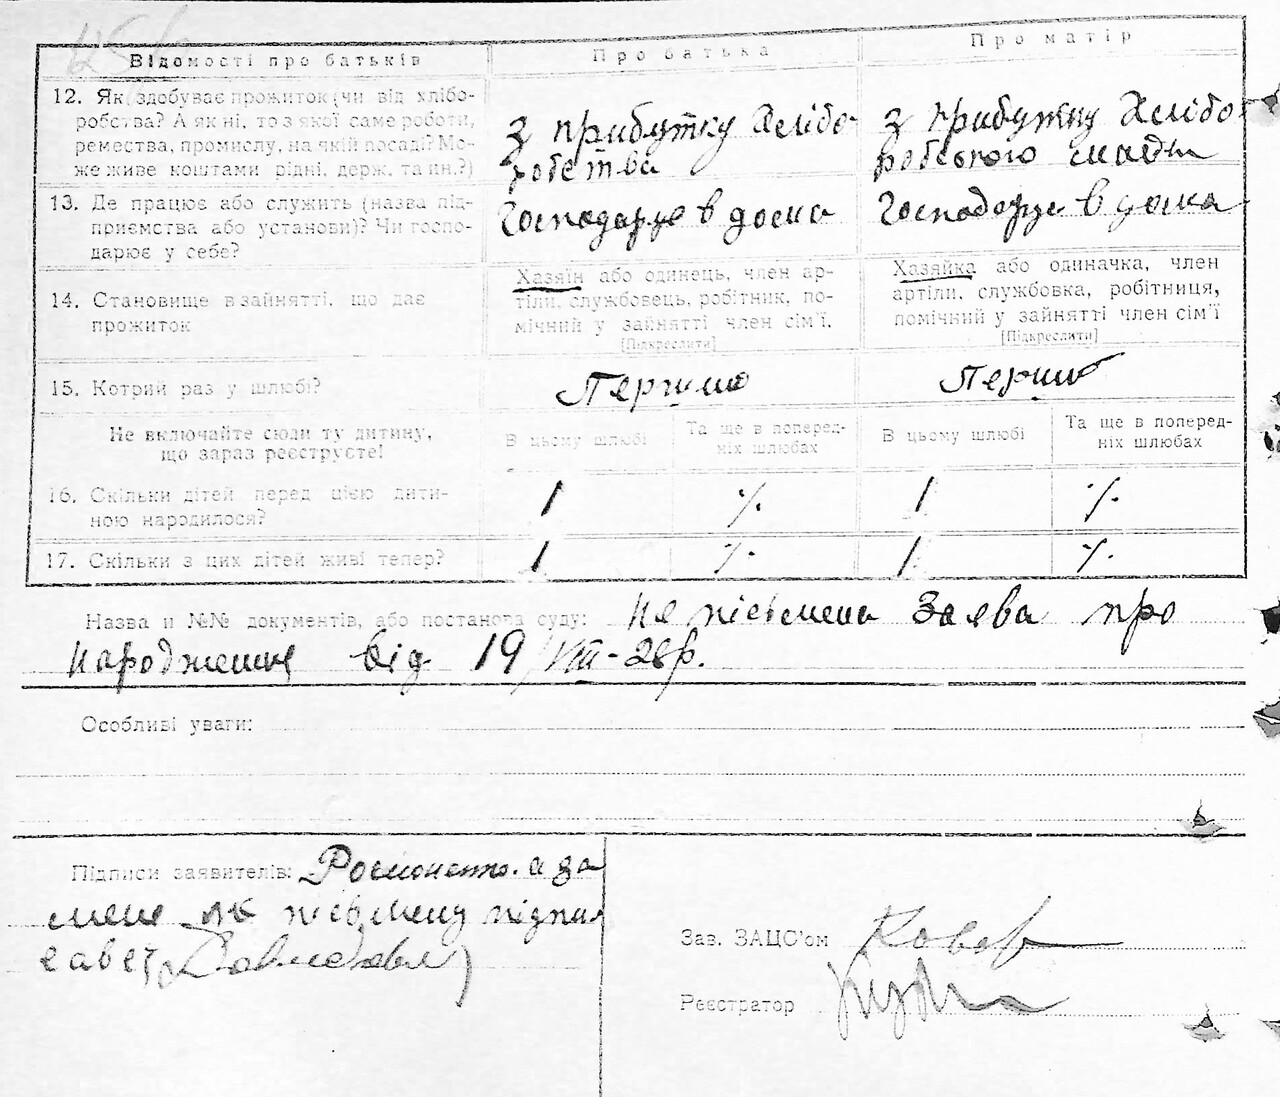 Відомості про батьків
Про батька
Про матір
12. Як здобуває прожиток (чи від хлібо-
робства? А як ні, то з якої саме роботи,
ремества, промислу, на якій посаді? Мо-
же живе коштами рідні, держ. та ин.?)
з прибутку хлібо-
робства
з прибутку хлібо-
робського
13. Де працює або служить (назва під-
приємства або установи)? Чи госпо-
дарює у себе?
Господарує в дома
Господарує в дома
14. Становище в зайнятті, що дає
прожиток
Хазяїн або одинець, член ар-
тіли, службовець, робітник, по-
мічний у зайнятті член сім'ї.
[Підкреслити]
Хазяйка або одиначка, член
артіли, службовка, робітниця,
помічний у зайнятті член сім'ї
[Підкреслити]
15. Котрий раз у шлюбі?
Не включайте сюди ту дитину,
що зараз реєструєте!
В цьому шлюбі
Та ще в поперед-
ніх шлюбах
В цьому шлюбі
Та ще в поперед-
ніх шлюбах
16. Скільки дітей перед цією дити-
ною народилося?
1
⁒
1
⁒
17. Скільки з цих дітей живі тепер?
1
⁒
1
⁒
Назва и №№ документів, або постанова суду: Не письмена Заява про
народження від 19/VIII-28р.
Особливі уваги:
Підписи заявителів: а за
мене
Зав. ЗАЦС'ом
Реєстратор